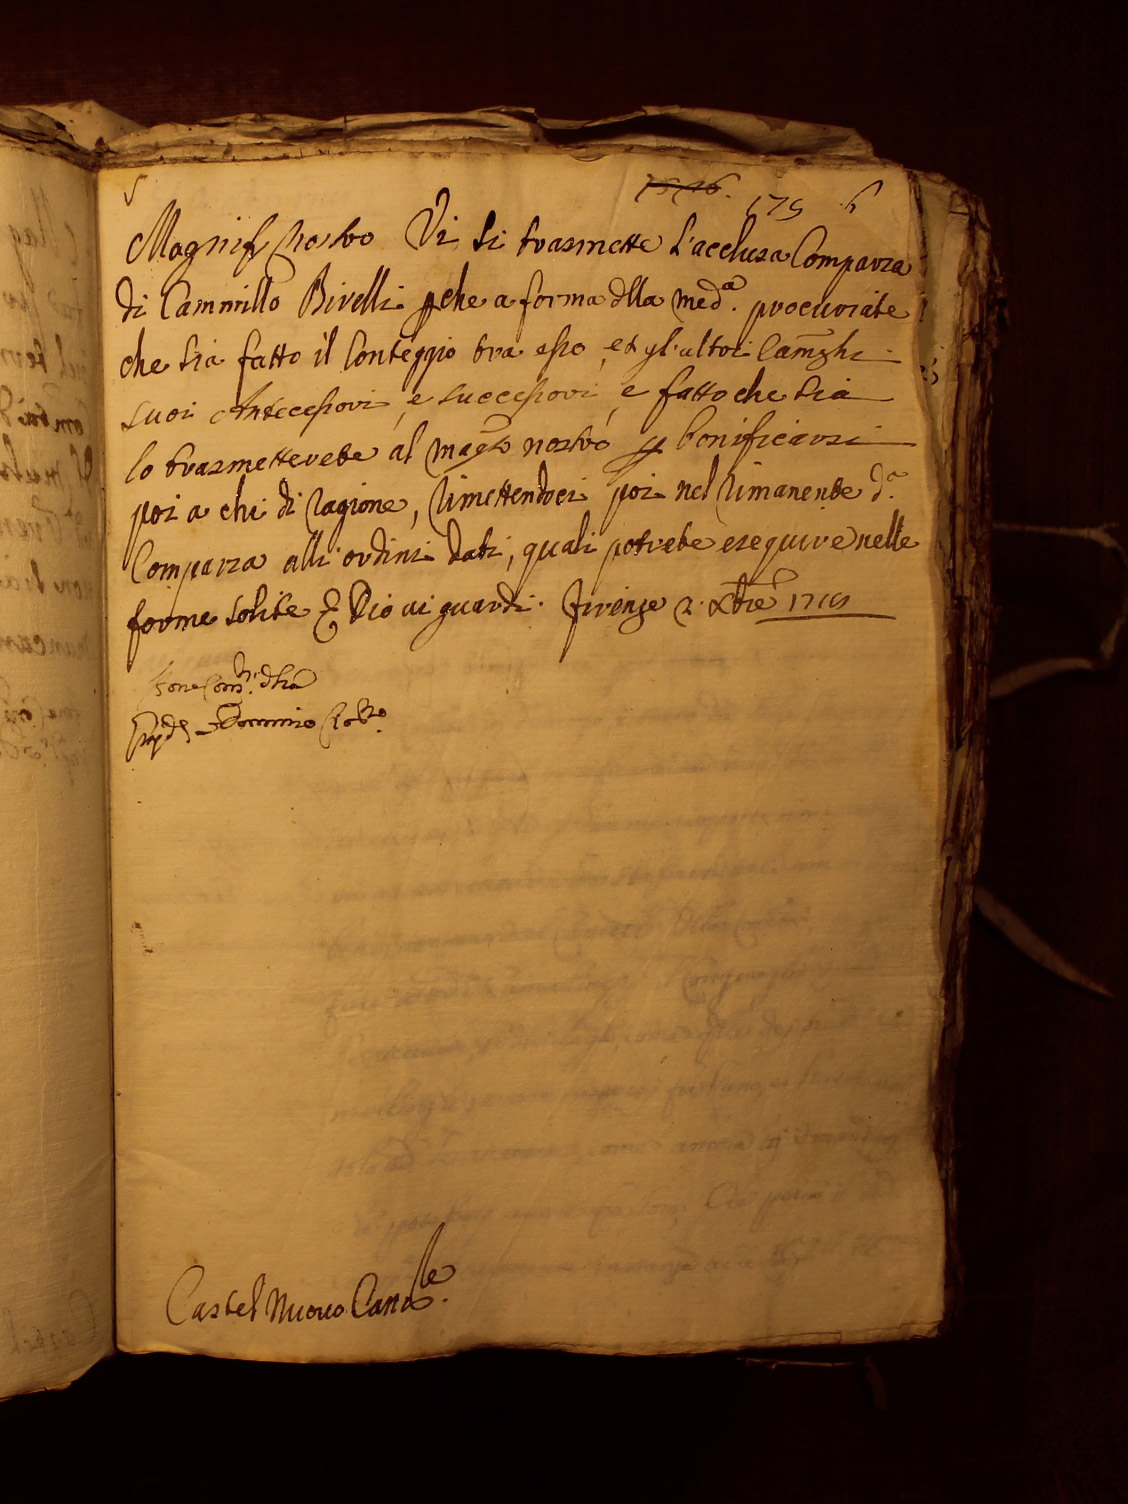 175 6
Magnif. Nostro Vi si trasmette l'acclusa Comparsa
di Cammillo Birelli pche a forma dlla med.ª procuriate
che sia fatto il Conteggio tra esso, et gl'altri Camghi
suoi Antecessori, e successori, e fatto che sia
lo trasmetterete al mag.to nostro p bonificarsi
poi a chi di ragione, rimettendoci poi nel rimanente d.ª
Comparsa alli ordini dati, quali potrete eseguire nelle
forme solite e Dio vi guardi. Firenze 2. Xbre
Castel Nuouo Canc.le